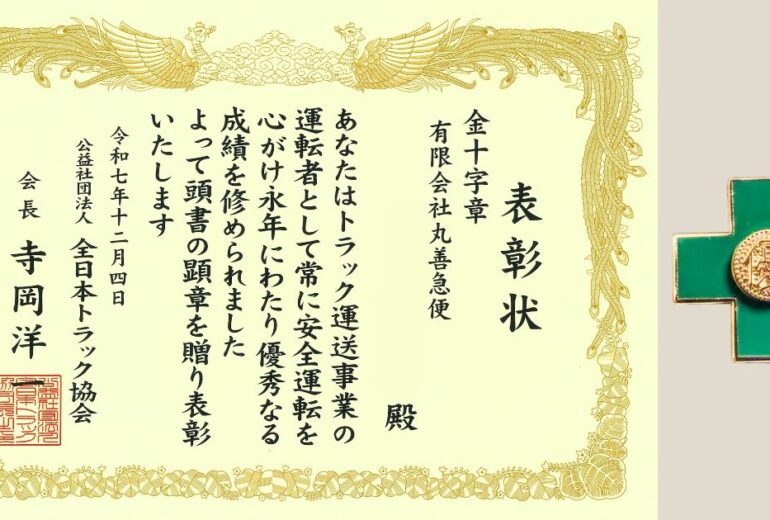 表彰状
金十字章
有限会社丸善急便
殿
あなたはトラック運送事業の
運転者として常に安全運転を
心がけ永年にわたり優秀なる
成績を修められました
よって頭書の顕章を贈り表彰
いたします
令和七年十二月四日
公益社団法人 全日本トラック協会
会長 寺岡洋一